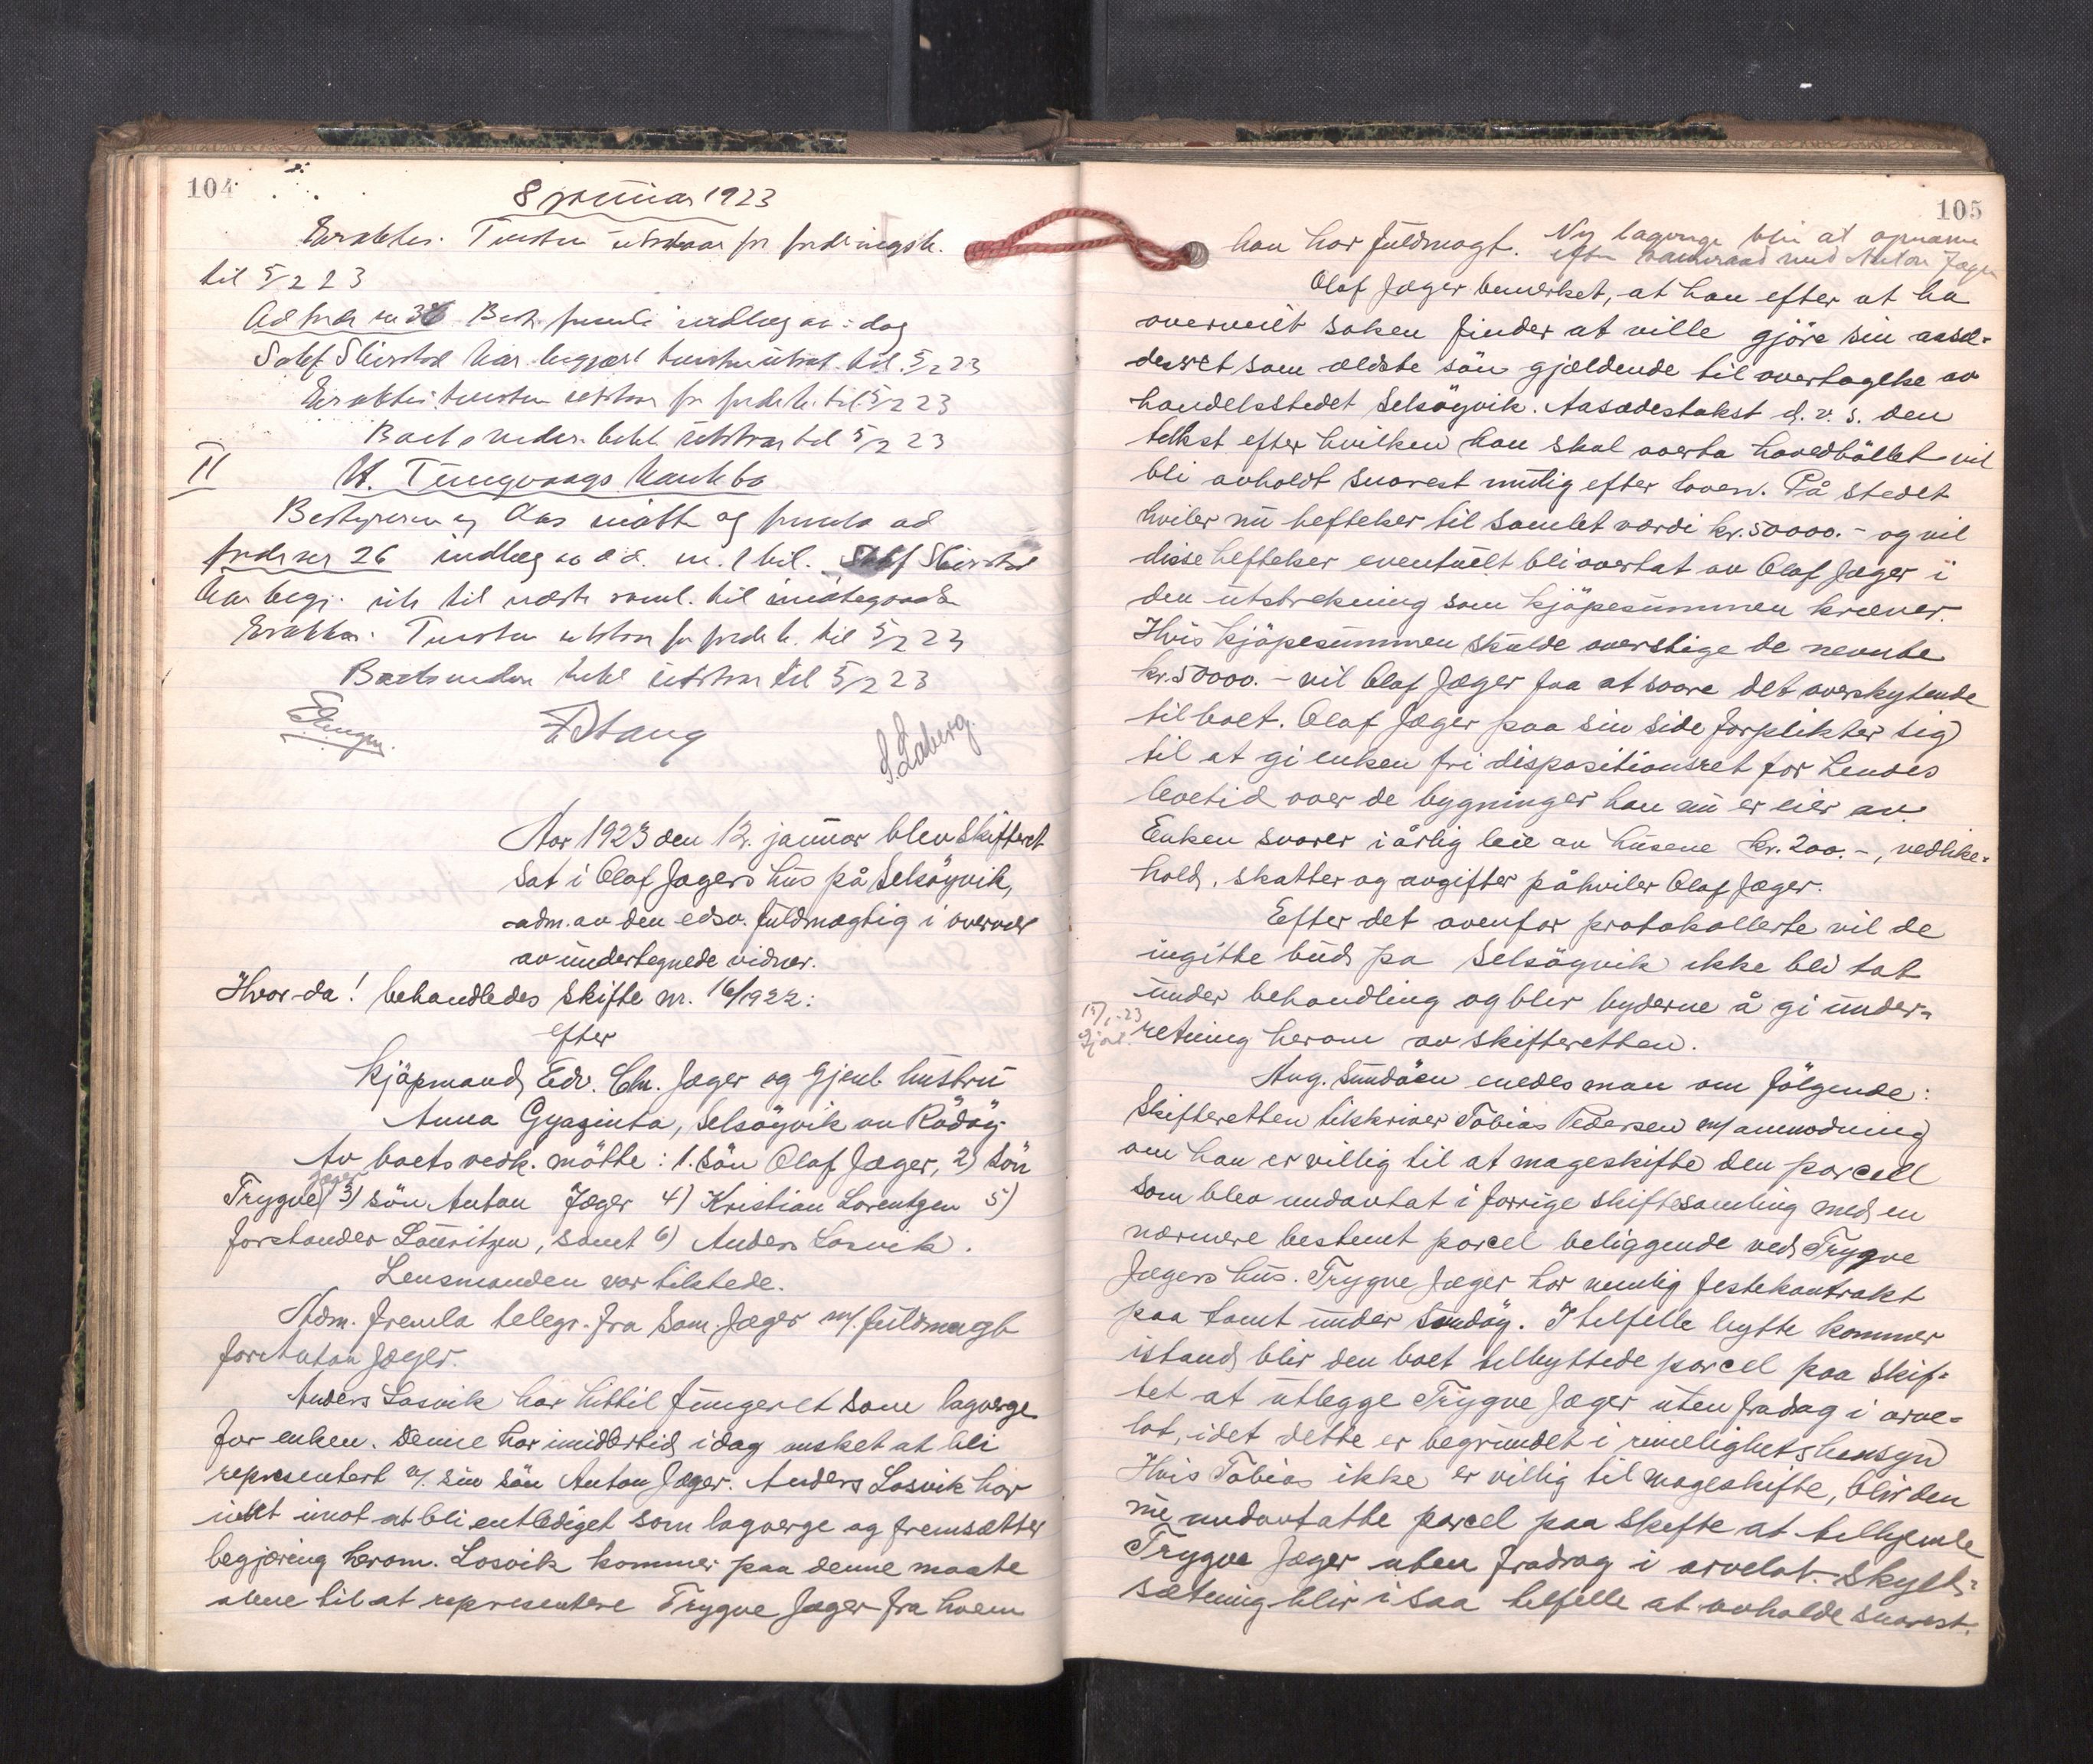 104
8 januar 1923
Erakter. Testen utstaar for fordringsh.
til 5/2 23
Ad fordr nr 36 Best. fremla indlæg av i dag
Sakf Skirstad har begjært utsat til 5/2 23
utstaar for fordr h. til 5/2 23
Boets videre beh. utstaar til 5/2 23
II
H. Tungvaags konk bo
Bestyreren og møtte og fremla ad
fordr nr 26 indlæg av d.d. m. 1 bil. Sakf Skirstad
har begj. uts til næste saml. til imøtegaaelse
utstaar for fordr h. til 5/2 23
Boets videre beh utstaar til 5/2 23
Stang
S. Laberg.
Aar 1923 den 12. januar blev skifteret
sat i Olaf Jægers hus på Selsöyvik,
adm. av den edsv. fuldmægtig i overvær
av undertegnede vidner.
Hvor da! behandledes skifte nr. 16/1922:
efter
Kjöpmand Edv. Chr. Jæger og gjenl. hustru
Anna Gyazinta, Selsöyvik av Rödöy.
Av boets vedk. mötte: 1. sön Olaf Jæger, 2) sön
Trygve Jæger 3) sön Anton Jæger 4) Kristian Lorentzen 5)
forstander Lauritzen, samt 6) Anders Losvik.
Lensmanden var tilstede.
Adm. fremla telegr. fra Sam. Jæger m/. fuldmagt
for Anton Jæger.
Anders Losvik har hittil fungeret som lagverge
for enken. Denne har imidlertid idag ønsket at bli
representert v/. sin sön Anton Jæger. Anders Losvik har
intet imot at bli entlediget som lagverge og fremsætter
begjæring herom. Losvik kommer paa denne maate
alene til at representere Trygve Jæger fra hvem
105
han har fuldmagt. Ny lagverge blir at opnævne
efter samraad med Anton Jæger
Olaf Jæger bemerket, at han efter at ha
overveiet saken finder at ville gjöre sin aasæ-
desret som ældste sön gjældende til overtagelse av
handelsstedet Selsöyvik. Aasædestakst d.v.s. den
takst efter hvilken han skal overta hovedbölet vil
bli avholdt snarest mulig efter loven. På stedet
hviler nu heftelser til samlet værdi kr. 50000.- og vil
disse heftelser eventuelt bli overtat av Olaf Jæger i
den utstrekning som kjöpesummen kræver.
Hvis kjöpesummen skulde overstige de nevnte
kr. 50000.- vil Olaf Jæger faa at svare det overskytende
til boet. Olaf Jæger paa sin side forplikter sig
til at gi enken fri dispositionsret for hendes
levetid over de bygninger han nu er eier av.
Enken svarer i årlig leie av husene kr. 200.-, vedlike-
hold, skatter og avgifter påhviler Olaf Jæger.
Efter det ovenfor protokollerte vil de
ingitte bud på Selsöyvik ikke bli tat
under behandling og blir byderne å gi under-
retning herom av skifteretten.
15/1-23
Gjort.
Ang. Sundöen enedes man om fölgende:
Skifteretten tilskriver Tobias Pedersen m/ anmodning
om han er villig til at mageskifte den parcell
som blev undantat i forrige skiftesamling med en
nærmere bestemt parcel beliggende ved Trygve
Jægers hus. Trygve Jæger har nemlig festekontrakt
paa tomt under Sundöy. I tilfelle bytte kommer
istand blir den boet tilbyttede parcel paa skif-
tet at utlegge Trygve Jæger uten fradrag i arve-
lot, idet dette er begrundet i rimelighetshensyn
Hvis Tobias ikke er villig til mageskifte, blir den
nu undantatte parcel paa skifte at tilhjemle
Trygve Jæger uten fradrag i arvelot. Skyld-
sætning blir i saa tilfelle at avholde snarest.